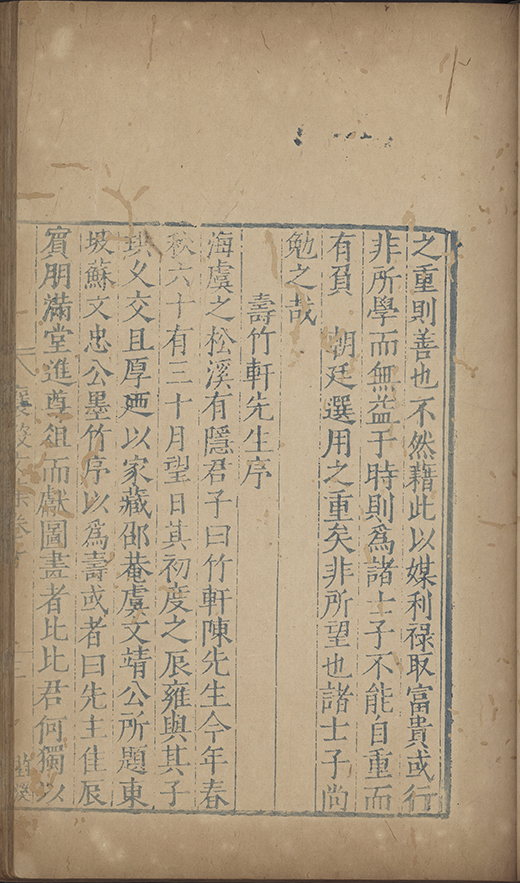 之重則善也不然藉此以媒利祿取富貴或行
非所學而無益于時則爲諸士子不能自重而
有負　朝廷選用之重矣非所望也諸士子尚
勉之哉
壽竹軒先生序
海虞之松溪有隱君子曰竹軒陳先生今年春
秋六十有三十月望日其初度之辰雍與其子
珙父交且厚廼以家藏邵菴虞文靖公所題東
坡蘇文忠公墨竹序以爲壽或者曰先生佳辰
賓朋滿堂進尊俎而獻圖畫者比比君何獨以